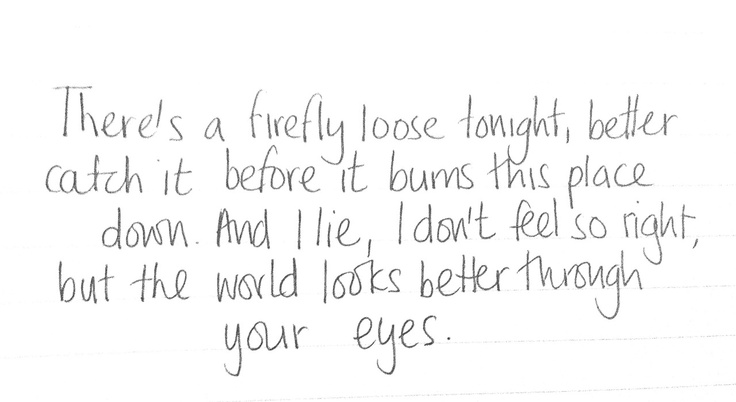 There's a firefly loose tonight, better
catch it before it burns this place
down. And I lie, I don't feel so right,
but the world looks better through
your eyes.